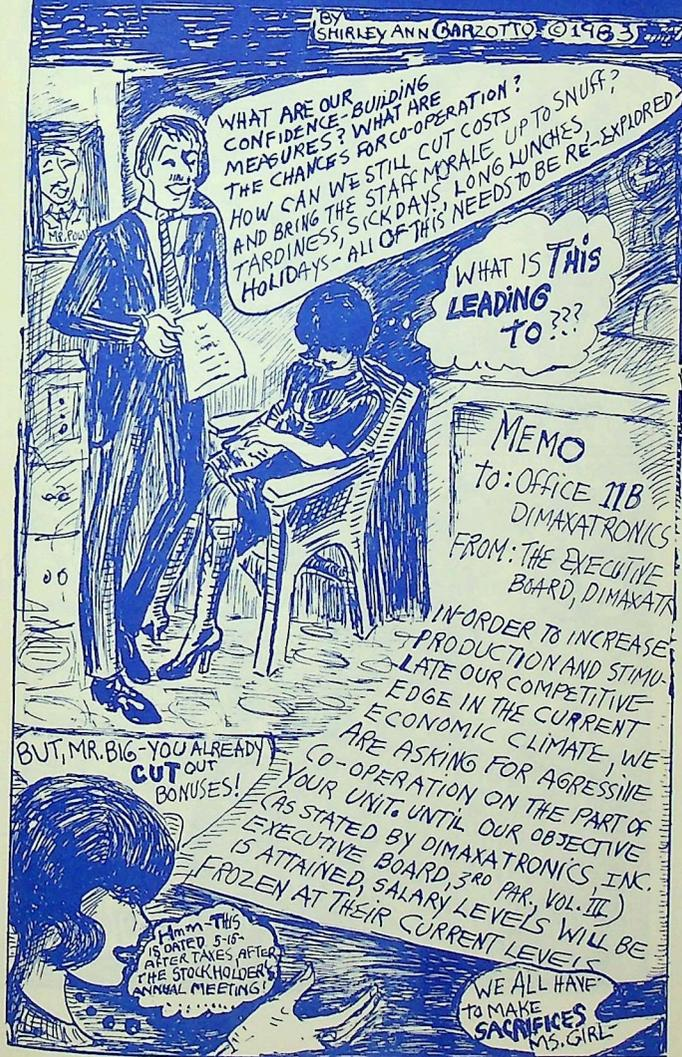 BY
SHIRLEY ANN BARZOTTO © 1983
WHAT ARE OUR
CONFIDENCE-BUILDING
MEASURES? WHAT ARE
THE CHANCES FOR CO-OPERATION?
HOW CAN WE STILL CUT COSTS
AND BRING THE STAFF MORALE UP TO SNUFF?
TARDINESS, SICK DAYS, LONG LUNCHES,
HOLIDAYS - ALL OF THIS NEEDS TO BE RE-EXPLORED
MR. POW
WHAT IS THIS
LEADING
TO???
MEMO
TO: OFFICE 11B
DIMAXATRONICS
FROM: THE EXECUTIVE
BOARD, DIMAXATR
IN ORDER TO INCREASE
PRODUCTION AND STIMU-
LATE OUR COMPETITIVE
EDGE IN THE CURRENT
ECONOMIC CLIMATE, WE
ARE ASKING FOR AGRESSIVE
CO-OPERATION ON THE PART OF
YOUR UNIT. UNTIL OUR OBJECTIVE
(AS STATED BY DIMAXATRONICS, INC.
EXECUTIVE BOARD, 3RD PAR., VOL. III)
IS ATTAINED, SALARY LEVELS WILL BE
FROZEN AT THEIR CURRENT LEVELS
BUT, MR. BIG - YOU ALREADY
CUT OUT
BONUSES!
HMM - THIS
IS DATED 5-15-
AFTER TAXES, AFTER
THE STOCKHOLDER'S
ANNUAL MEETING!
WE ALL HAVE
TO MAKE
SACRIFICES
MS. GIRL-